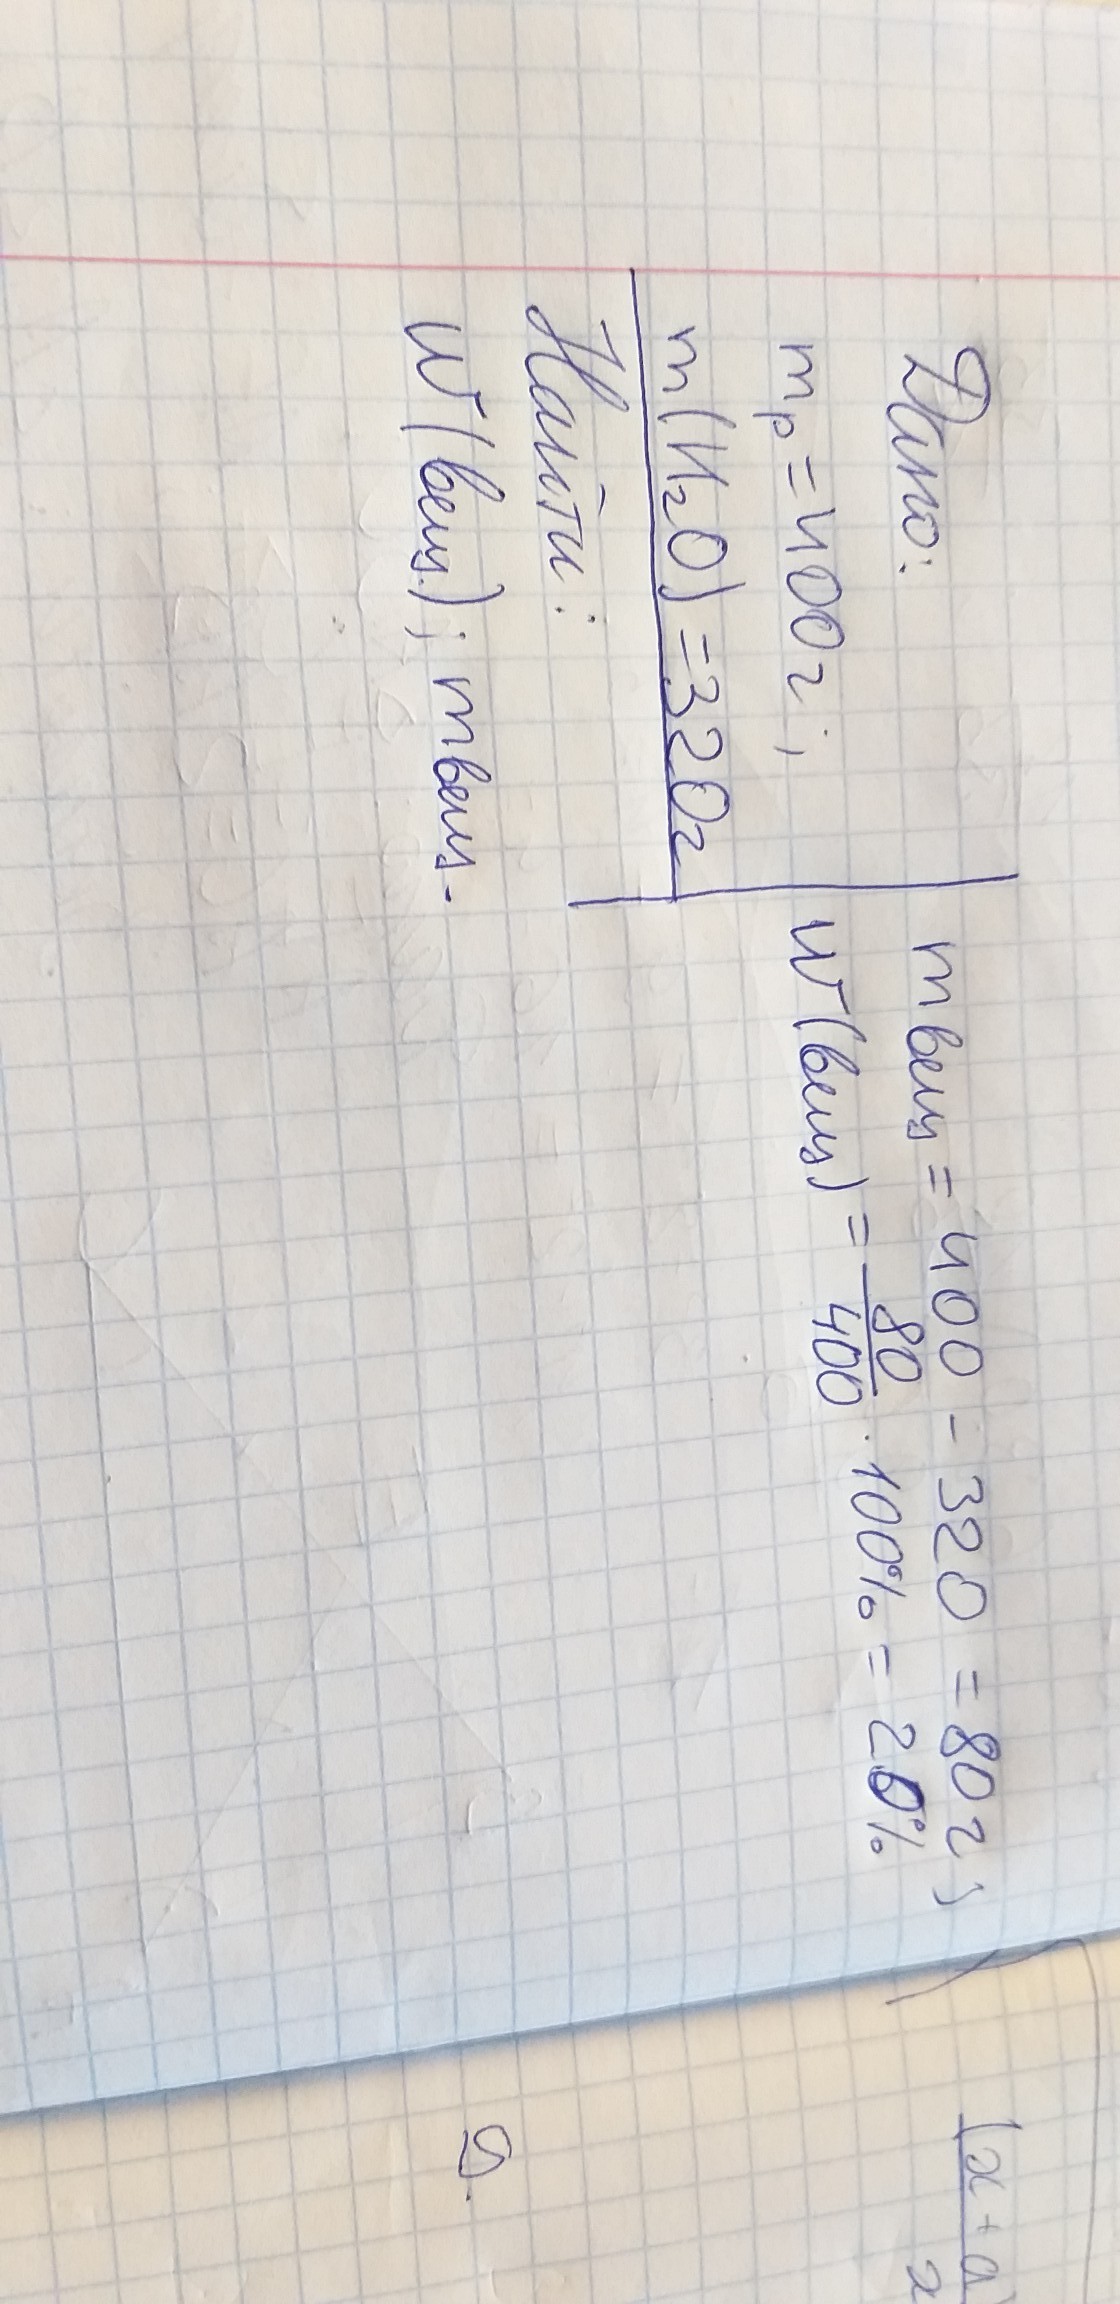 Дано:
mр = 400г;
m(H₂O) = 320г
Найти:
W(вещ.); mвещ.
mвещ = 400 - 320 = 80г;
W(вещ) = 80/400 · 100% = 20%
(x+a)